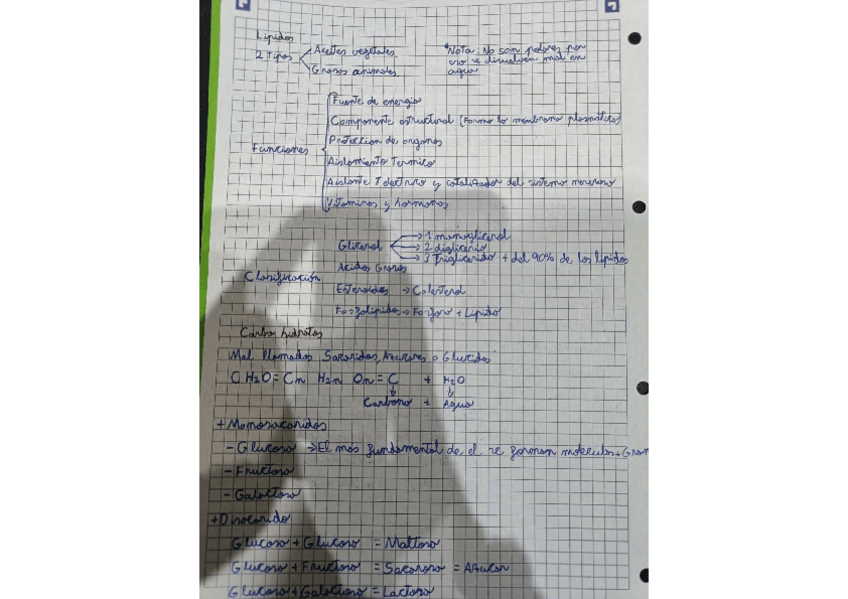 Lípidos
2 Tipos
Aceites vegetales
Grasas animales
*Nota: No son polares por
eso se disuelven mal en
agua
Funciones
Fuente de energia
Componente estructural (Forma la membrana plasmática)
Protección de organos
Aislamiento Termico
Aislante y catalizador del sistema nervioso
Vitaminas y hormonas
Clasificación
Glicerol
1 monoglicerol
2 diglicerio
3 Triglicerido + del 90% de los lípidos
Acidos Grasos
Esteroides → Colesterol
Fosfolipidos → Fosforo + Lípido
Carbohidratos
Mal llamados Sacaridos, Azucares o Glucidos
C H2O = Cn H2n On = C + H2O
Carbono + Agua
+ Monosacaridos
- Glucosa → El más fundamental de el se forman moleculas + Gran
- Fructosa
- Galactosa
+ Disacarido
Glucosa + Glucosa = Maltosa
Glucosa + Fructosa = Sacarosa = Azucar
Glucosa + Galactosa = Lactosa